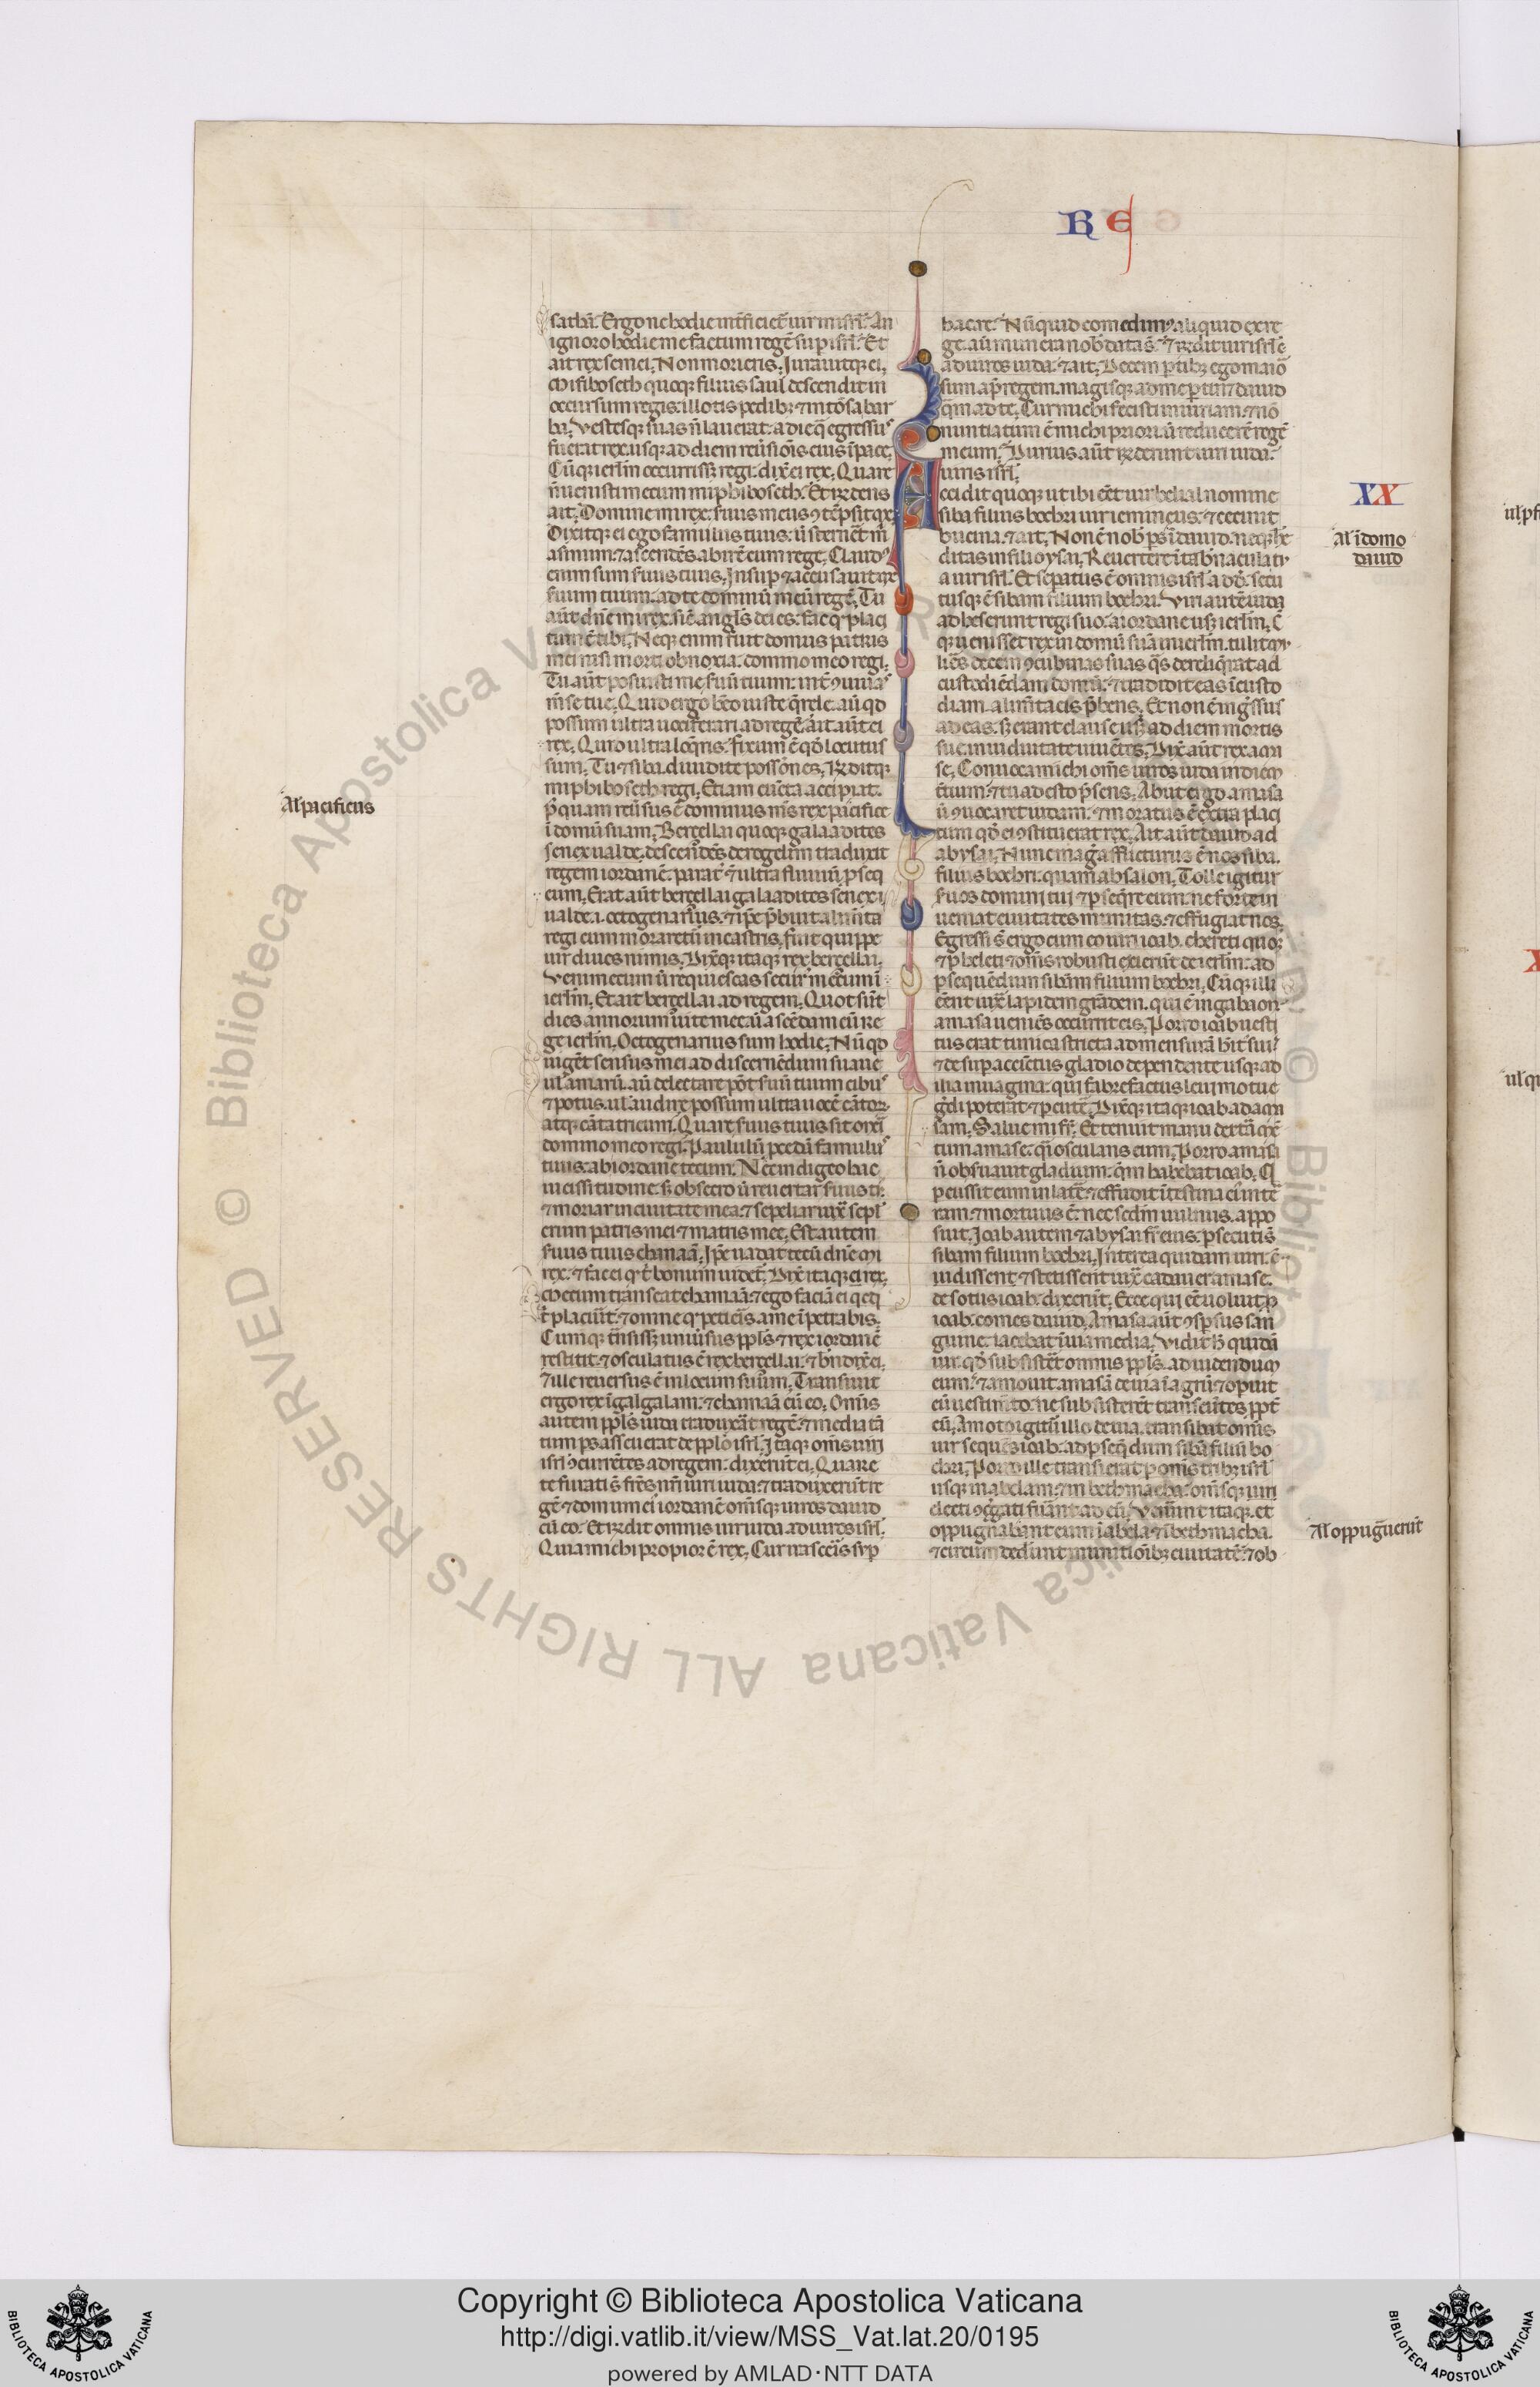 R E
sathan. Ergo ne hodie interficiet̄ uir in isrl̄. An
ignoro hodie me factum regē sup isrl̄. Et
ait rex semei, Non morieris. Iurauitque ei.
Miphiboseth quoque filius saul descendit in
occursum regis: illotis pedibꝫ ⁊ intōsa bar
ba. Vestesque suas n̄ lauerat: a die qͣ egressus
fuerat rex. usque ad diem reūsiōis eius ī pace.
Cūque ierlm̄ occurrissꝫ regi: dix̄ ei rex. Quare
n̄ uenisti mecum miphiboseth. Et rn̄dens
ait. Domine mi rex: seruus meus ꝯtēpsit me
Dixitque ei ego famulus tuus: ut sterneret m̄
asinum: ⁊ ascendēs abirē cum rege. Claudus
enim sum seruus tuus. Insup ⁊ accusauit me
seruum tuum: ad te dominū meū regē. Tu
aūt dn̄e mi rex: sic̄ angl̄s dei es: fac qd̄ placi
tum ē tibi. Neque enim fuit domus patris
mei nisi morti obnoxia: domino meo regi.
Tu aūt posuisti me seruū tuum: int̄ ꝯuiuas
mēse tue. Quid ergo hēo iuste qrele: aū qd
possum ultra uociferari ad regē. ait aūt ei
rex. Quid ultra loqr̄is. fixum ē qd̄ locutus
sum. Tu ⁊ siba. diuidite possōnes. Rn̄ditque
miphiboseth regi. Etiam cuncta accipiat:
pꝰquam reūsus ē dominus m̄s rex pacifice
ī domū suam. Berçellai quoque galaadites
senex ualde. descendēs de rogelim traduxit
regem iordanē. paratꝰ ē ultra fluuiū ꝑseq
eum. Erat aūt berçellai galaadites senex
ualde. i. octogenarius. ⁊ ip̄e p̄buit alimēta
regi cum moraretur in castris. fuit quippe
uir diues nimis. Dix̄que itaque rex berçellai.
Veni mecum ut requiescas securꝰ mecum ī
ierlm̄. Et ait berçellai ad regem. Quot sūt
dies annorum uite mee: ut ascēdam cū re
ge ierlm̄. Octogenarius sum hodie. Nūqd
uigēt sensus mei ad discernēdum suaue
ul̄ amarū. aū delectare pōt seruū tuum cibus
⁊ potus. ul̄ audire possum ultra uocē cātorꝫ
atque cātatricum. Quare seruus tuus sit oneri
domino meo regi. Paululū pcedā famulus
tuus: ab iordane tecum. Nec indigeo hac
uicissitudine. sꝫ obsecro ut reuertar seruus tꝰ:
⁊ moriar in ciuitate mea: ⁊ sepeliar iux̄ sepl̄
crum patris mei ⁊ matris mee. Est autem
seruus tuus chamaā. Ip̄e uadat tecū dn̄e mi
rex: ⁊ fac ei qd̄ t̄ bonum uidet̄. Dix̄ itaque ei rex.
Mecum transeat chamaā: ⁊ ego faciā ei qcqd
t̄ placuerit: ⁊ omne qd̄ petieris a me īpetrabis.
Cumque transissꝫ uniūsus ppl̄s ⁊ rex iordanē
restitit: ⁊ osculatus ē rex berçellai: ⁊ bn̄dix̄ ei.
⁊ ille reuersus ē in locum suum. Transiuit
ergo rex ī galgalam: ⁊ chamaā cū eo. Om̄is
autem ppl̄s iuda traduxāt regē: ⁊ media tā
tum ps affuerat de ppl̄o isrl̄. Itaque om̄s uiri
isrl̄ ꝯcurrētes ad regem: dixerūt ei. Quare
te furati s̄t fr̄es nr̄i uiri iuda: ⁊ traduxerūt re
gē ⁊ domum ei iordanē om̄sque uiros dauid
cū eo. Et rn̄dit omnis uir iuda. ad uiros isrl̄.
Quia michi propior ē rex. Cur irasceris sup
hac re. Nūquid comedimꝰ aliquid ex re
ge. aū munera nob̄ data s̄t. ⁊ rn̄dit uir isrl̄
ad uiros iuda ⁊ ait. Decem ptibꝫ ego maior
sum ap̄ regem. magisque ad me ptinꝫ dauid
qm̄ ad te. Cur michi fecisti iniuriam: ⁊ nō
nuntiatum ē michi priori. ut reducerē regē
meum. Durius aūt rn̄derunt uiri iuda:
uiris isrl̄.
XX
Accidit quoque ut ibi eēt uir belial nomine
siba filius bochri uir iemineus: ⁊ cecinit
bucina. ⁊ ait. Non ē nob̄ ps ī dauid. neque here
ditas in filio ysai. Reuertere ī tab̄nacula tua
Al' ī domo
dauid
uir isrl̄. Et sepatus ē omnis isrl̄ a dd̄. secu
tusque ē sibam filium bochri. Viri autē iuda
adheserunt regi suo: a iordane usꝫ ierlm̄. C̄
que uenisset rex in domū suā in ierlm̄. tulit mu
lierēs decem ꝯcubinas suas qs dereliqrat ad
custodiēdam domū: ⁊ tradidit eas ī custo
diam. alimēta eis p̄bens. Et non ē ingressus
ad eas. sꝫ erant clause usꝫ ad diem mortis
sue in uiduitate uiuētes. Dix̄ aūt rex ama
se. Conuoca michi om̄s uiros iuda in diem
tertium: ⁊ tu adesto p̄sens. Abiit ergo amasa
ut ꝯuocaret iudam: ⁊ moratus ē extra placi
tum qd̄ ei ꝯstituerat rex. Ait aūt dauid ad
abysai. Nunc magis afflicturus ē nos siba.
filius bochri: quam absalon. Tolle igitur
seruos domini tui ⁊ pseqre eum: ne forte in
ueniat ciuitates munitas: ⁊ effugiat nos.
Egressi s̄t ergo cum eo uiri ioab. chereti quoque
⁊ pheleti ⁊ om̄s robusti exierūt de ierlm̄: ad
psequēdum sibam filium bochri. Cūque illi
eēnt iux̄ lapidem grādem. qui ē in gabaon:
amasa ueniēs occurrit eis. Porro ioab uesti
tus erat tunica stricta ad mensurā hit̄ sui:
⁊ desup accinctus gladio dependente usque ad
ilia in uagina: qui fabrefactus leui motu e
gredi poterat ⁊ pcutē. Dix̄que itaque ioab ad ama
sam. Salue mi fr̄. Et tenuit manu dextra mē
tum amase. q̄i osculans eum. Porro amasa
n̄ obseruauit gladium: qm̄ habebat ioab. Q
pcussit eum in latē: ⁊ effudit ītestina ei in tē
ram ⁊ mortuus ē: nec sed̄m uulnus. appo
suit. Ioab autem ⁊ abysai fr̄ eius. psecuti s̄t
sibam filium bochri. Interea quidam uiri. c̄
uidissent. ⁊ stetissent iux̄ cadauer amase.
de sotiis ioab: dixerūt. Ecce qui eē uoluit. p
ioab: comes dauid. Amasa aūt ꝯspsus san
guine: iacebat ī uia media. Vidit h̄ quidā
uir. qd̄ subsistēt omnis ppl̄s. ad uidendum
eum: ⁊ amouit amasā de uia ī agrū: ⁊ opuit
eū uestimto: ne subsisterēt transeūtes. ppt̄
eū. Amoto igitur illo de uia. transibat om̄is
uir sequēs ioab: ad pseqndum sibā filiū bo
chri. Porro ille transierat p om̄s tribꝫ isrl̄
usque in abelam. ⁊ in bethmacha: om̄sque uiri
electi ꝯgregati fuerant ad eū. Venerunt itaque. et
oppugnabant eum ī abela ⁊ ī bethmacha.
⁊ circumdederunt munitiōibꝫ ciuitatē: ⁊ ob
Al' pacificus
Al' oppugnauerunt
Copyright © Biblioteca Apostolica Vaticana
http://digi.vatlib.it/view/MSS_Vat.lat.20/0195
powered by AMLAD·NTT DATA
BIBLIOTECA APOSTOLICA VATICANA
BIBLIOTECA APOSTOLICA VATICANA
© Biblioteca Apostolica Vaticana ALL RIGHTS RESERVED